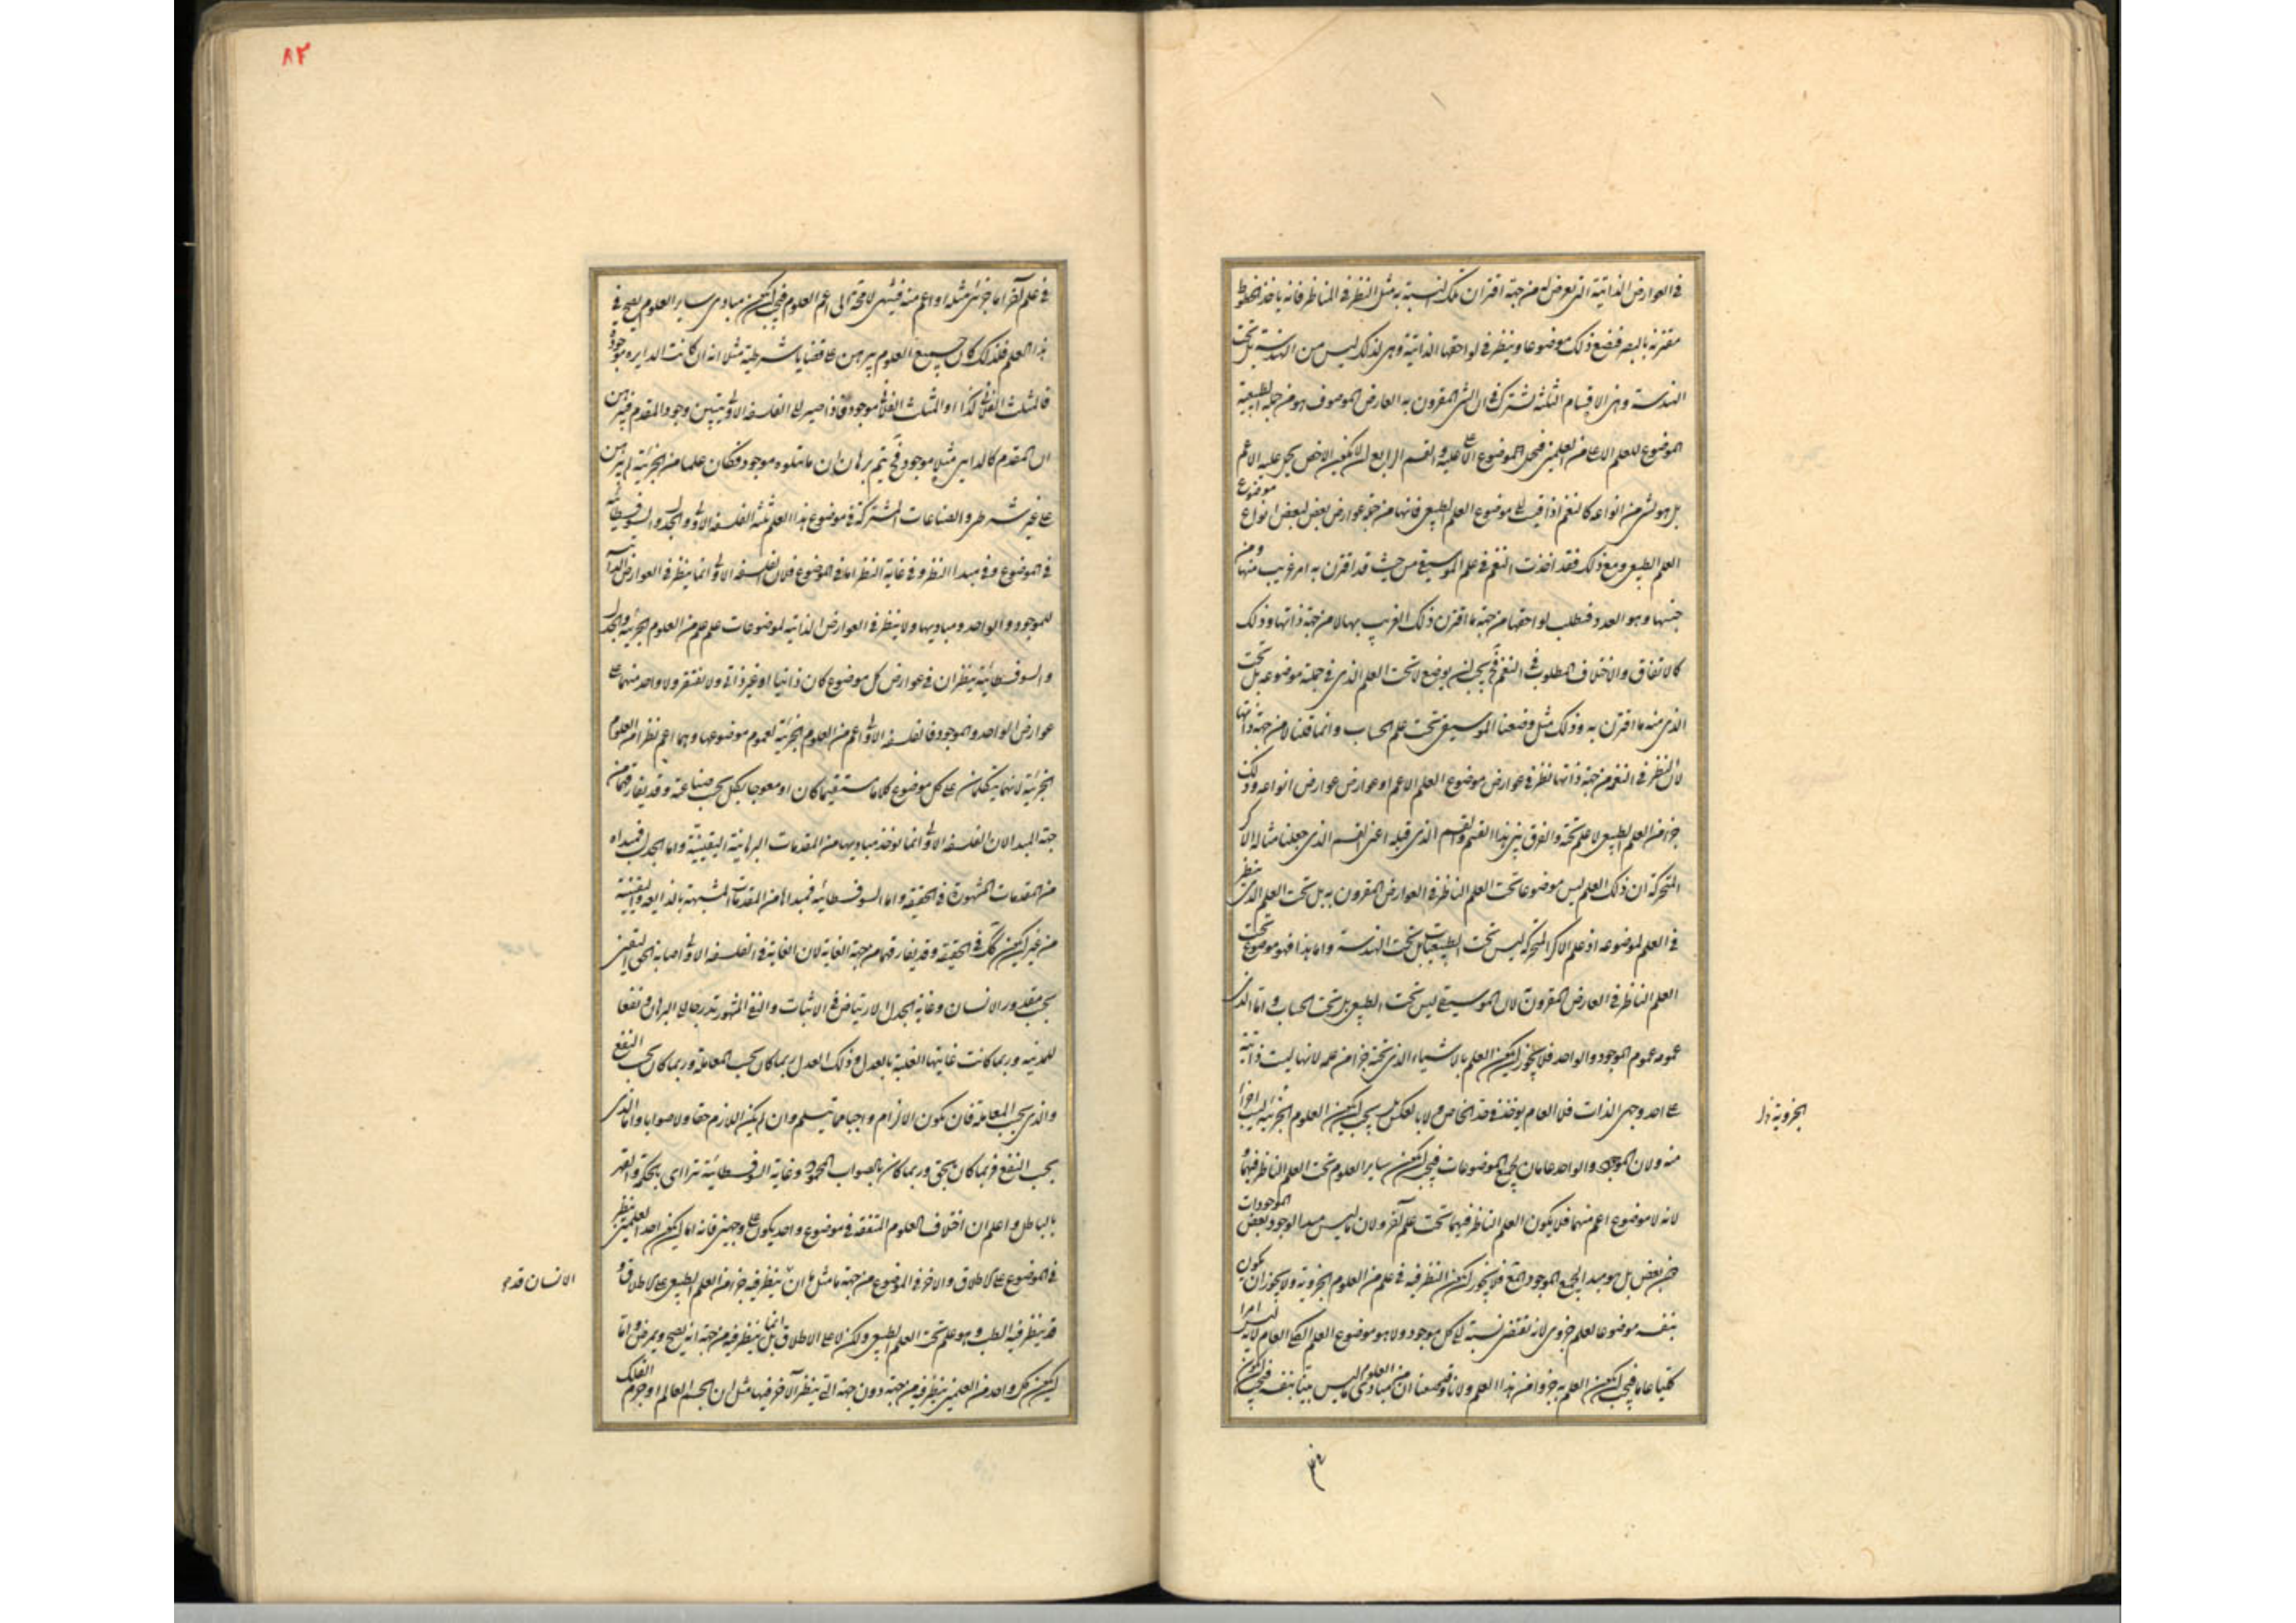 في العوارض الذاتية التي تعرض له من جهة اقتران تلك النسبة به مثل النظر في المناظر فانه ياخذ الخطوط
مقترنة بالبصر فتضع ذلك موضوعا وينظر في لواحقها الذاتية وهي لذلك ليس من الهندسة بل تحت
الهندسة وهذه الاقسام الثلثة تشترك في ان الشي المقرون به العارض الموصوف هو من جملة الطبيعة
الموضوع للعلم الاعلى من العلمين فيحمل الموضوع الاعلى عليه والقسم الرابع ان لا يكون الاخص يحمل عليه الاعم
بل هو شي من انواعه كالنغم اذا قيست الى موضوع العلم الطبيعي فانها من جملة عوارض بعض لبعض انواع موضوع
العلم الطبيعي ومع ذلك فقد اخذت النغم في علم الموسيقى من حيث قد اقترن به امر غريب منها ومن
جنسها وهو العدد فتطلب لواحقها من جهة ما اقترن ذلك الغريب بها لا من جهة ذاتها وذلك
كالاتفاق والاختلاف المطلوب في النغم فح يجب ان يوضع لا تحت العلم الذي في جملة موضوعه بل تحت
الذي منه ما اقترن به وذلك مثل وضعنا الموسيقى تحت علم الحساب وانما قلنا لا من جهة ذاتها
لان النظر في النغم من جهة ذاتها نظر في عوارض موضوع العلم الاعم او عوارض عوارض انواعه وذلك
جزء من العلم الطبيعي لا علم تحته والفرق بين هذا القسم والقسم الذي قبله اعني القسم الذي جعلنا مثاله الاكر
المتحركة ان ذلك العلم ليس موضوعا تحت العلم الناظر في العوارض المقرون به بل تحت العلم الذي ينظر
في العلم لموضوعه اذ علم الاكر المتحركة ليس تحت الطبيعيات بل تحت الهندسة واما هذا فهو موضوع تحت
العلم الناظر في العارض المقرون لان الموسيقى ليس تحت الطبيعي بل تحت الحساب واما الذي
عمومه عموم الموجود والواحد فلا يجوز ان يكون العلم بالاشياء الذي تحته جزءا من علمه لانها ليست ذاتية
على احد وجهي الذات فلا العام يوخذ في حد الخاص ولا بالعكس بل يجب ان يكون العلوم الجزئية ليست اجزاء
منه ولان الموجود والواحد عامان لجميع الموضوعات فيجب ان يكون ساير العلوم تحت العلم الناظر فيهما و
لانه لا موضوع اعم منهما فلا يكون العلم الناظر فيهما تحت علم آخر ولان ما ليس مبدا لوجود بعض الموجودات
دون بعض بل هو مبدا لجميع الموجود المع فلا يجوز ان يكون النظر فيه في علم من العلوم الجزوية ولا يجوز ان يكون
بنفسه موضوعا لعلم جزوي لانه يقتضي نسبة الى كل موجود ولا هو موضوع العلم الكلي العام لانه ليس امرا
كليا عاما فيجب ان يكون العلم به جزوا من هذا العلم ولانا وضعنا ان من مبادي العلوم ما ليس بينا بنفسه فيجب ان يكون
الجزوية
في علم آخر اما جزئي مثله او اعم منه فينتهي لا محة الى اعم العلوم فيجب ان يكون مبادي ساير العلوم يصح في
هذا العلم فلذلك كان جميع العلوم يبرهن على قضايا شرطية مثلا انه ان كانت الدايرة موجودة
فالمثلث الفلاني كذا او المثلث الفلاني موجود فاذا صير الى الفلسفة الاولى يتبين وجود المقدم فيبرهن
ان المقدم كالدايرة مثلا موجود فح يتم برهان ان ما يتلوه موجود فكان علما من الجزئية لم يبرهن
على غير شرطي والصناعات المشتركة في موضوع هذا العلم ثلثة الفلسفة الاولى والجدل والسوفسطائية
في الموضوع وفي مبدا النظر وفي غاية النظر اما في الموضوع فلان الفلسفة الاولى انما ينظر في العوارض الذاتية
للموجود والواحد ومباديها ولا ينظر في العوارض الذاتية لموضوعات علم علم من العلوم الجزئية والجدل
والسوفسطائية ينظران في عوارض كل موضوع كان ذاتيا او غير ذاتي ولا تقتصر ولا واحد منهما على
عوارض الواحد والموجود فالفلسفة الاولى اعم من العلوم الجزئية لعموم موضوعها وهما اعم نظرا من العلوم
الجزئية لانهما يتكلمان على كل موضوع كلاما مستقيما كان او معوجا بكل بحسب صناعته وقد يفارقهما من
جهة المبدا لان الفلسفة الاولى انما توخذ مباديها من المقدمات البرهانية اليقينية واما الجدل فمبداه
من المقدمات المشهورة في الحقيقة واما السوفسطائية فمبداها من المقدمات المشبهة بالذايعة او اليقينية
من غير ان يكون كك في الحقيقة وقد يفارقهما من جهة الغاية لان الغاية في الفلسفة الاولى اصابة الحق اليقين
بحسب مقدور الانسان وغاية الجدل الارتياض في الاثبات والنفي المشهور تدرجا الى البرهان ونفعا
للمدنية وربما كانت غايتها الغلبة بالعدل وذلك العدل ربما كان بحسب المعاملة وربما كان بحسب النفع
والذي بحسب المعاملة فان يكون الالزام واجبا مما يتسلم وان لم يكن اللازم حقا ولا صوابا واما الذي
بحسب النفع فربما كان بالحق وربما كان بالصواب المحمود وغاية السوفسطائية تترااى بالحكمة والقهر
بالباطل واعلم ان اختلاف العلوم المتفقة في موضوع واحد يكون على وجهين فانه اما ان يكون احد العلمين ينظر
في الموضوع على الاطلاق والاخر في الموضوع من جهة ما مثل ما ان ينظر فيه جزء من العلم الطبيعي على الاطلاق و
قد ينظر فيه الطب وهو علم تحت العلم الطبيعي ولكن لا على الاطلاق بل انما ينظر فيه من جهة انه يصح ويمرض واما
ان يكون كل واحد من العلمين ينظر فيه من جهة دون جهة التي ينظر الآخر فيها مثل ان الجسم العالم او جرم الفلك
الانسان قد
٨٣